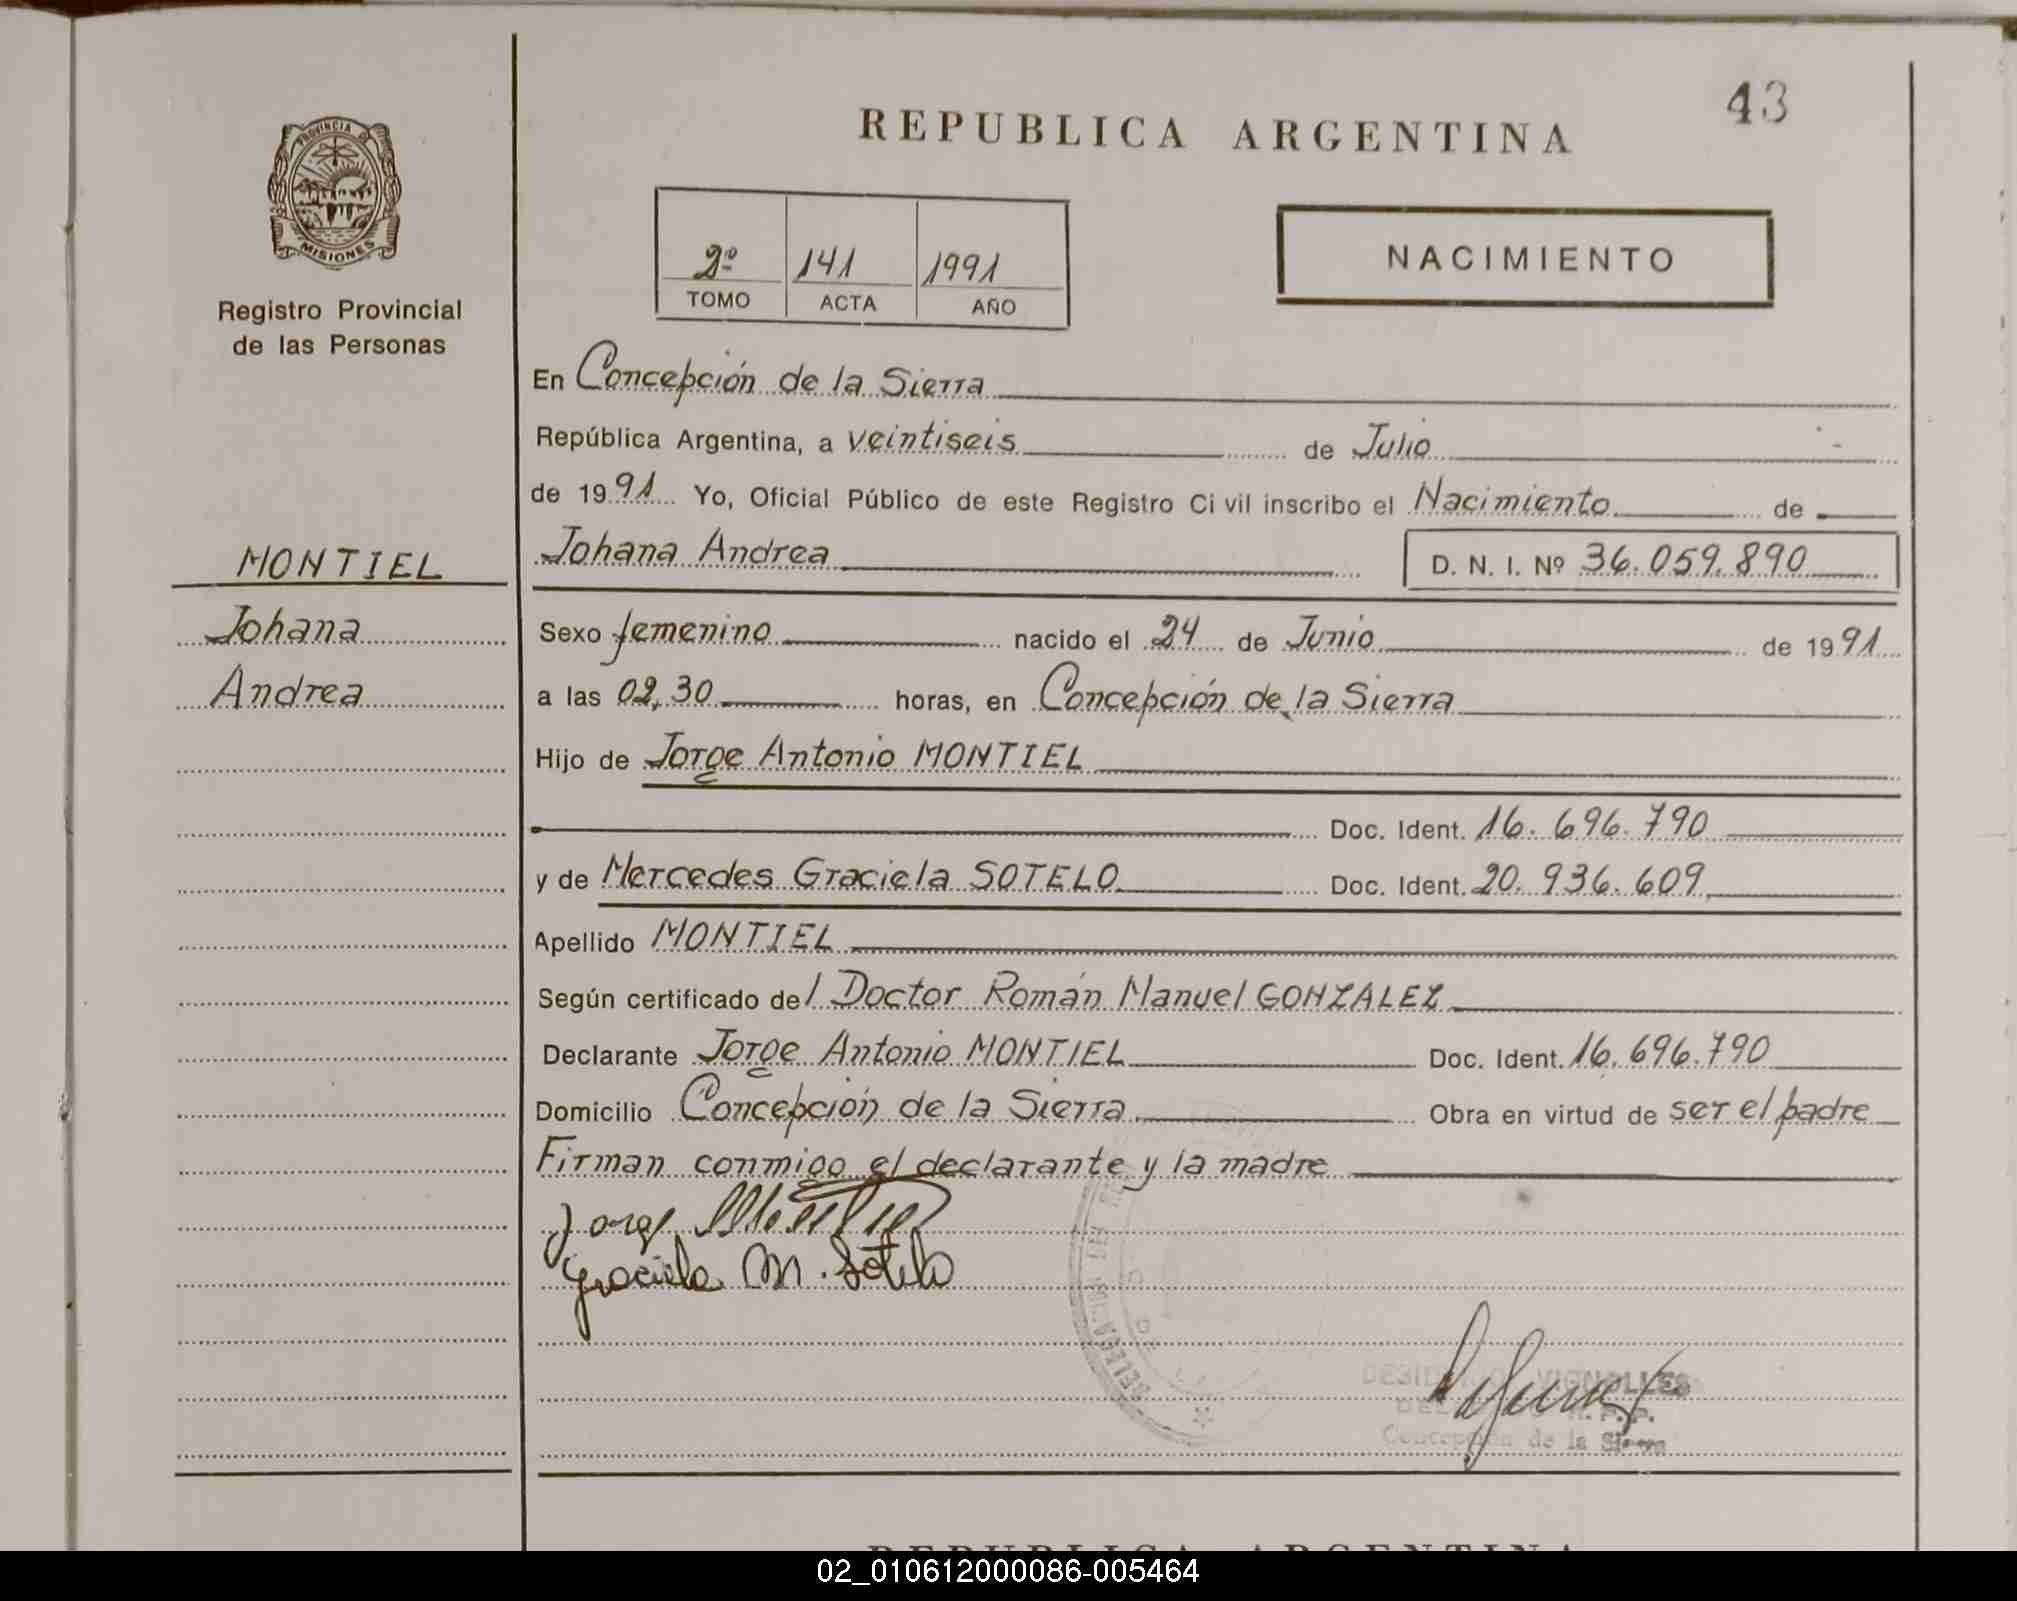 43
REPUBLICA ARGENTINA
PROVINCIA DE
MISIONES
Registro Provincial
de las Personas
2º 141 1991
TOMO ACTA AÑO
NACIMIENTO
En Concepción de la Sierra
República Argentina, a veintiseis de Julio
de 1991 Yo, Oficial Público de este Registro Civil inscribo el Nacimiento de
MONTIEL
Johana
Andrea
Johana Andrea D. N. I. Nº 36.059.890
Sexo femenino nacido el 24 de Junio de 1991
a las 02,30 horas, en Concepción de la Sierra
Hijo de Jorge Antonio MONTIEL
Doc. Ident. 16.696.790
y de Mercedes Graciela SOTELO Doc. Ident. 20.936.609
Apellido MONTIEL
Según certificado del Doctor Román Manuel GONZALEZ
Declarante Jorge Antonio MONTIEL Doc. Ident. 16.696.790
Domicilio Concepción de la Sierra Obra en virtud de ser el padre
Firman conmigo el declarante y la madre
Jorge Montiel
Graciela M. Sotelo
DELEGACION DEL
VIGNOLLES
R. P. P.
Concepción de la Sierra
REPUBLICA ARGENTINA
02_010612000086-005464